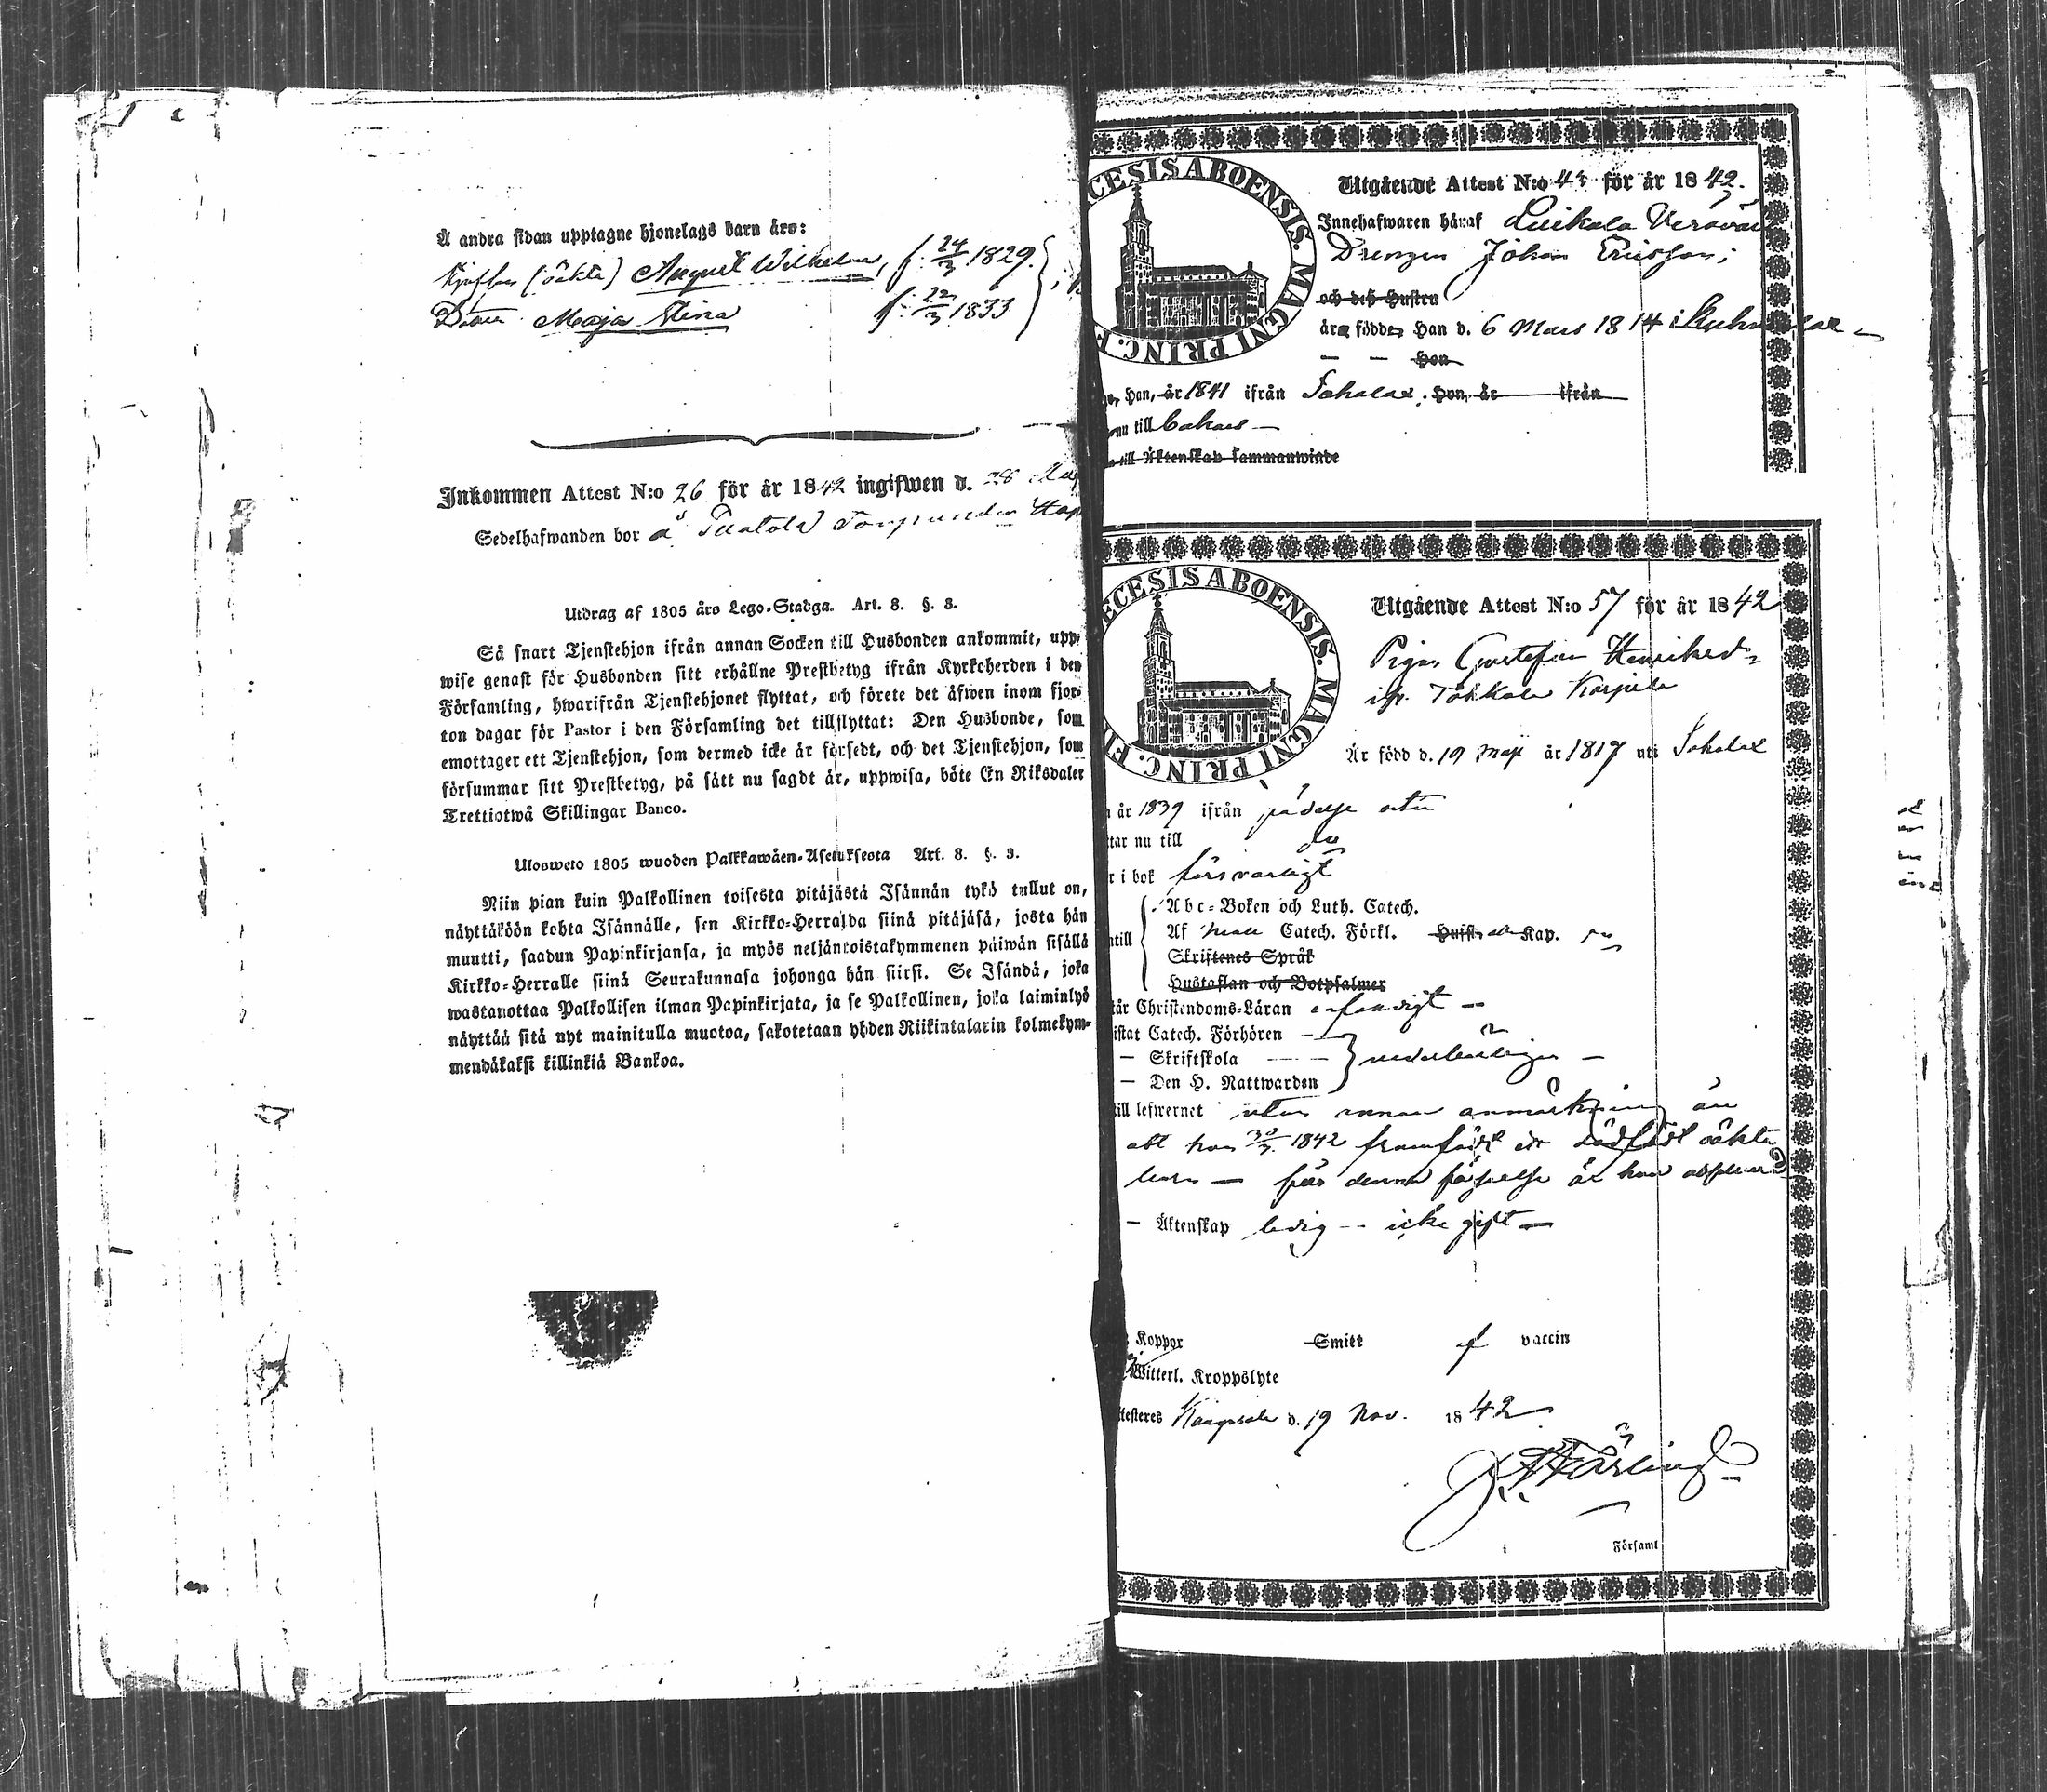 Å andra sidan upptagne hjonelags barn äro:
(oäkta) August Wilhelm, f. 24/3 1829.
Dotter Maja Stina f. 22/3 1833
Inkommen Attest N:o 26 för år 1842 ingifwen d. 28
Sedelhafwanden bor å
Utdrag af 1805 års Lego-Stadga. Art. 8. §. 3.
Så snart Tjenstehjon ifrån annan Socken till Husbonden ankommit, upp-
wise genast för Husbonden sitt erhållne Prestbetyg ifrån Kyrkoherden i den
Församling, hwarifrån Tjenstehjonet flyttat, och förete det äfwen inom fjor-
ton dagar för Pastor i den Församling det tillflyttat: Den Husbonde, som
emottager ett Tjenstehjon, som dermed icke är försedt, och det Tjenstehjon, som
försummar sitt Prestbetyg, på sätt nu sagdt är, uppwisa, böte En Riksdaler
Trettiotwå Skillingar Banco.
Ulosweto 1805 wuoden Palkkawäen-Asetuksesta Art. 8. §. 3.
Niin pian kuin Palkollinen toisesta pitäjästä Isännän tykö tullut on,
näyttäköön kohta Isännälle, sen Kirkko-Herralda siinä pitäjäsä, josta hän
muutti, saadun Papinkirjansa, ja myös neljäntoistakymmenen päiwän sisällä
Kirkko-Herralle siinä Seurakunnasa johonga hän siirsi. Se Isändä, joka
wastanottaa Palkollisen ilman Papinkirjata, ja se Palkollinen, joka laiminlyö
näyttää sitä nyt mainitulla muotoa, sakotetaan yhden Riikintalarin kolmekym-
mendäkaksi killinkiä Bankoa.
CESIS ABOENSIS. MAGNI PRINC. F
Utgående Attest N:o 43 för år 1842.
Innehafwaren häraf Luikala
Drengen Johan Ericsson;
och deß Hustru
äro födde, Han d. 6 Mars 1814 i
— — Hon
Han, år 1841 ifrån Sahalax. Hon, år ifrån
nu till
till Äktenskap sammanwigde
ECESIS ABOENSIS. MAGNI PRINC. FI
Utgående Attest N:o 57 för år 1842
Pigan Gustafva Henriksd:r
ifr.
Är född d. 19 Maji år 1817 uti Sahalax
år 1839 ifrån födelse orten
tar nu till do
r i bok försvarligt
ntill
Abc-Boken och Luth. Catech.
Af Catech. Förkl. Hufst. Kap.
Skriftenes Språk
Hustaflan och Botpsalmer
tår Christendoms-Läran enfaldigt —
istat Catech. Förhören —
— Skriftskola — —
— Den H. Nattwarden
vederbörligen —
till lefwernet utan annan anmärkning än
att hon 30/3 1842 framfödt ett dödfödt oäkta
barn — för denna förseelse är hon
— Äktenskap ledig — icke gift —
Koppor Smitt af vaccin
Witterl. Kroppslyte
ttesteres Kangasala d. 19 Nov. 1842
i Församl